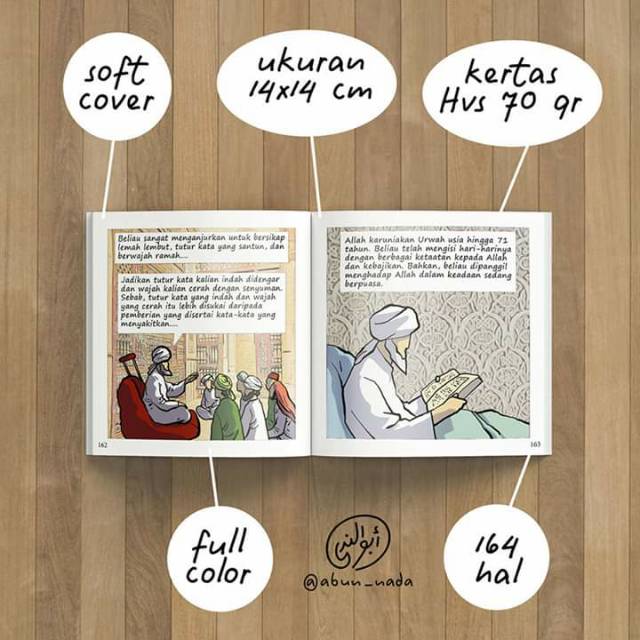 soft
cover
ukuran
14x14 cm
kertas
Hvs 70 gr
Beliau sangat menganjurkan untuk bersikap
lemah lembut, tutur kata yang santun, dan
berwajah ramah....
Jadikan tutur kata kalian indah didengar
dan wajah kalian cerah dengan senyuman.
Sebab, tutur kata yang indah dan wajah
yang cerah itu lebih disukai daripada
pemberian yang disertai kata-kata yang
menyakitkan....
162
Allah karuniakan Urwah usia hingga 71
tahun. Beliau telah mengisi hari-harinya
dengan berbagai ketaatan kepada Allah
dan kebajikan. Bahkan, beliau dipanggil
menghadap Allah dalam keadaan sedang
berpuasa.
163
full
color
أبو الندى
@abun_nada
164
hal